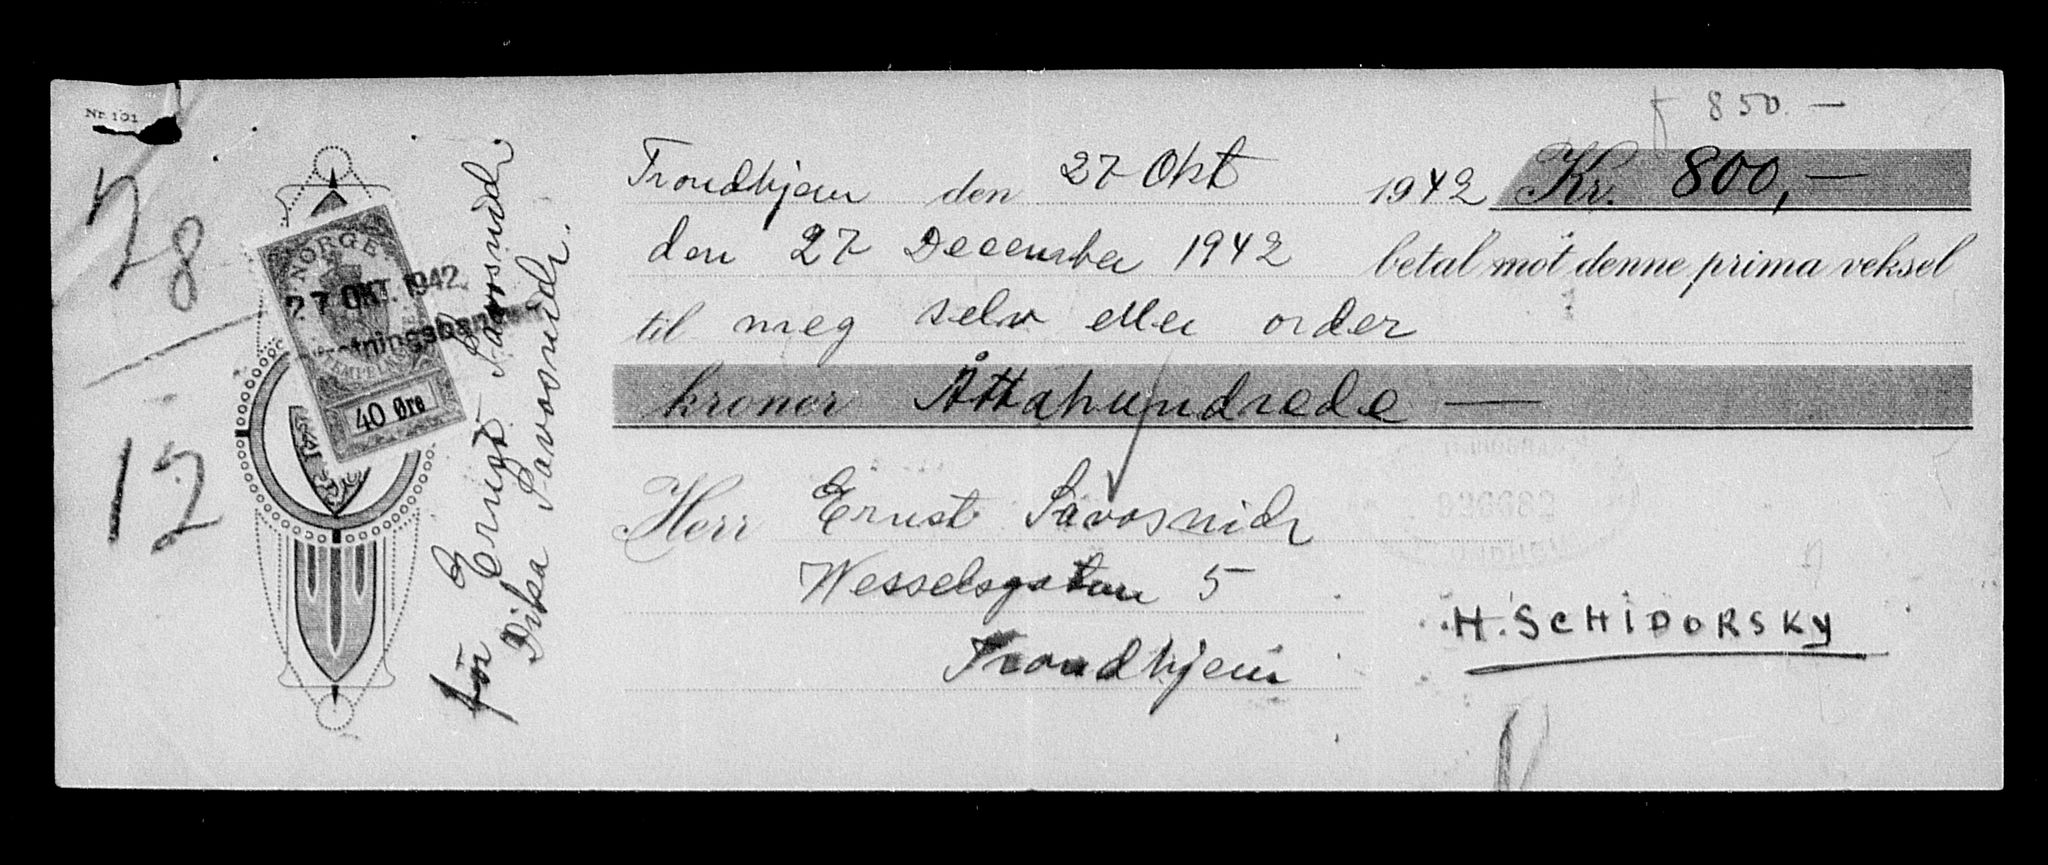 Nr. 101
850.—
Trondhjem den 27 Okt 1942 Kr. 800,—
den 27 December 1942 betal mot denne prima veksel
til meg selv eller order
kroner Åttahundrede —
Herr Ernst Savosnick
Wesselsgaten 5
Trondhjem
H. SCHIDORSKY
28
12
NORGE
27 OKT. 1942
40 Øre
för Ernst Savosnick
Dika Savosnick.